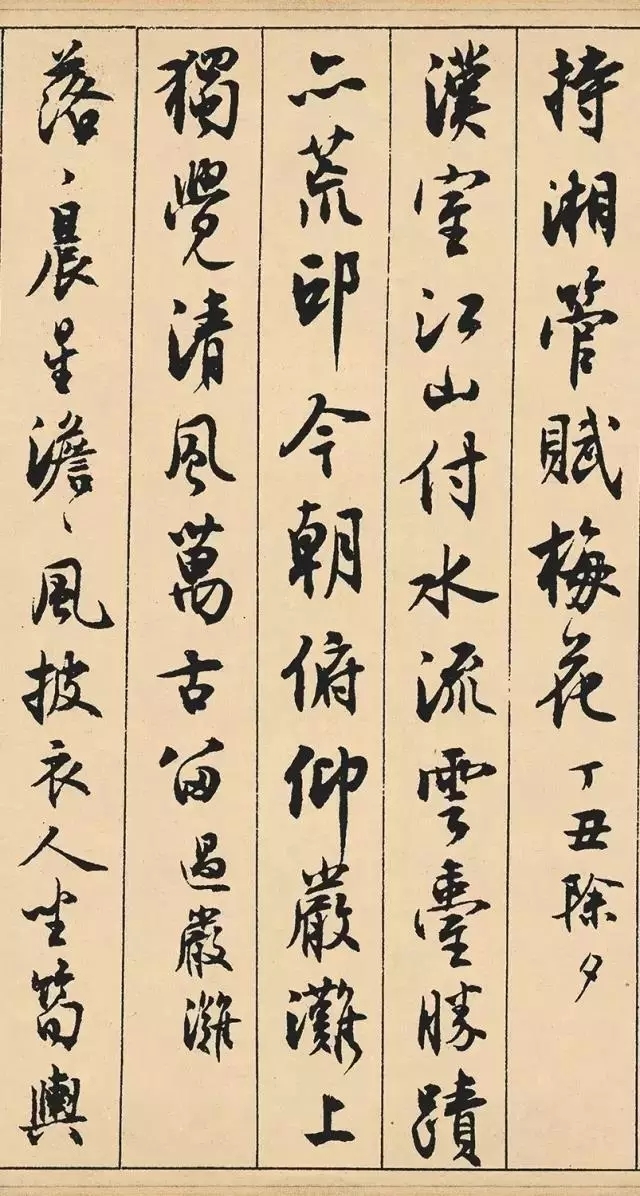 持湘管賦梅花丁丑除夕
漢室江山付水流雲臺勝蹟
亦荒邱今朝俯仰嚴灘上
獨覺清風萬古留過嚴灘
落〻晨星澹〻風披衣人坐筍輿